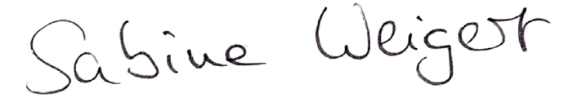 Sabine Weigert